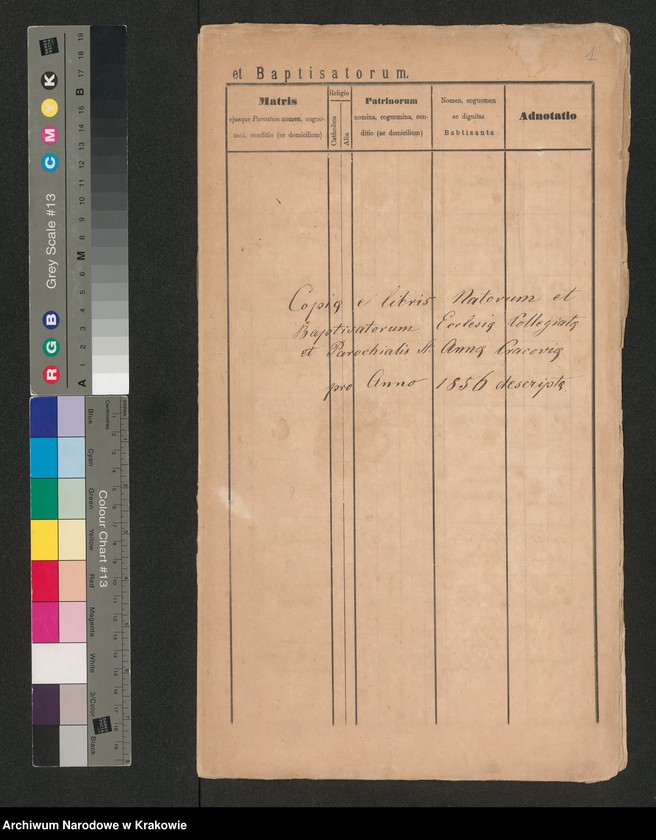 1
et Baptisatorum.
Matris
ejusque Parentum nomen, cogno-
men, conditio (ac domicilium)
Religio
Catholica
Alia
Patrinorum
nomina, cognomina, con-
ditio (ac domicilium)
Nomen, cognomen
ac dignitas
Babtisantis
Adnotatio
Copia e libris Natorum et
Baptisatorum Ecclesia Collegiata
et Parochialis St. Anna Cracovia
pro Anno 1856 descripta.
Grey Scale #13
R G B C M Y K
A 1 2 3 4 5 6 M 8 9 10 11 12 13 14 15 B 17 18 19
Colour Chart #13
Blue
Cyan
Green
Yellow
Red
Magenta
White
3/Color
Black
Archiwum Narodowe w Krakowie